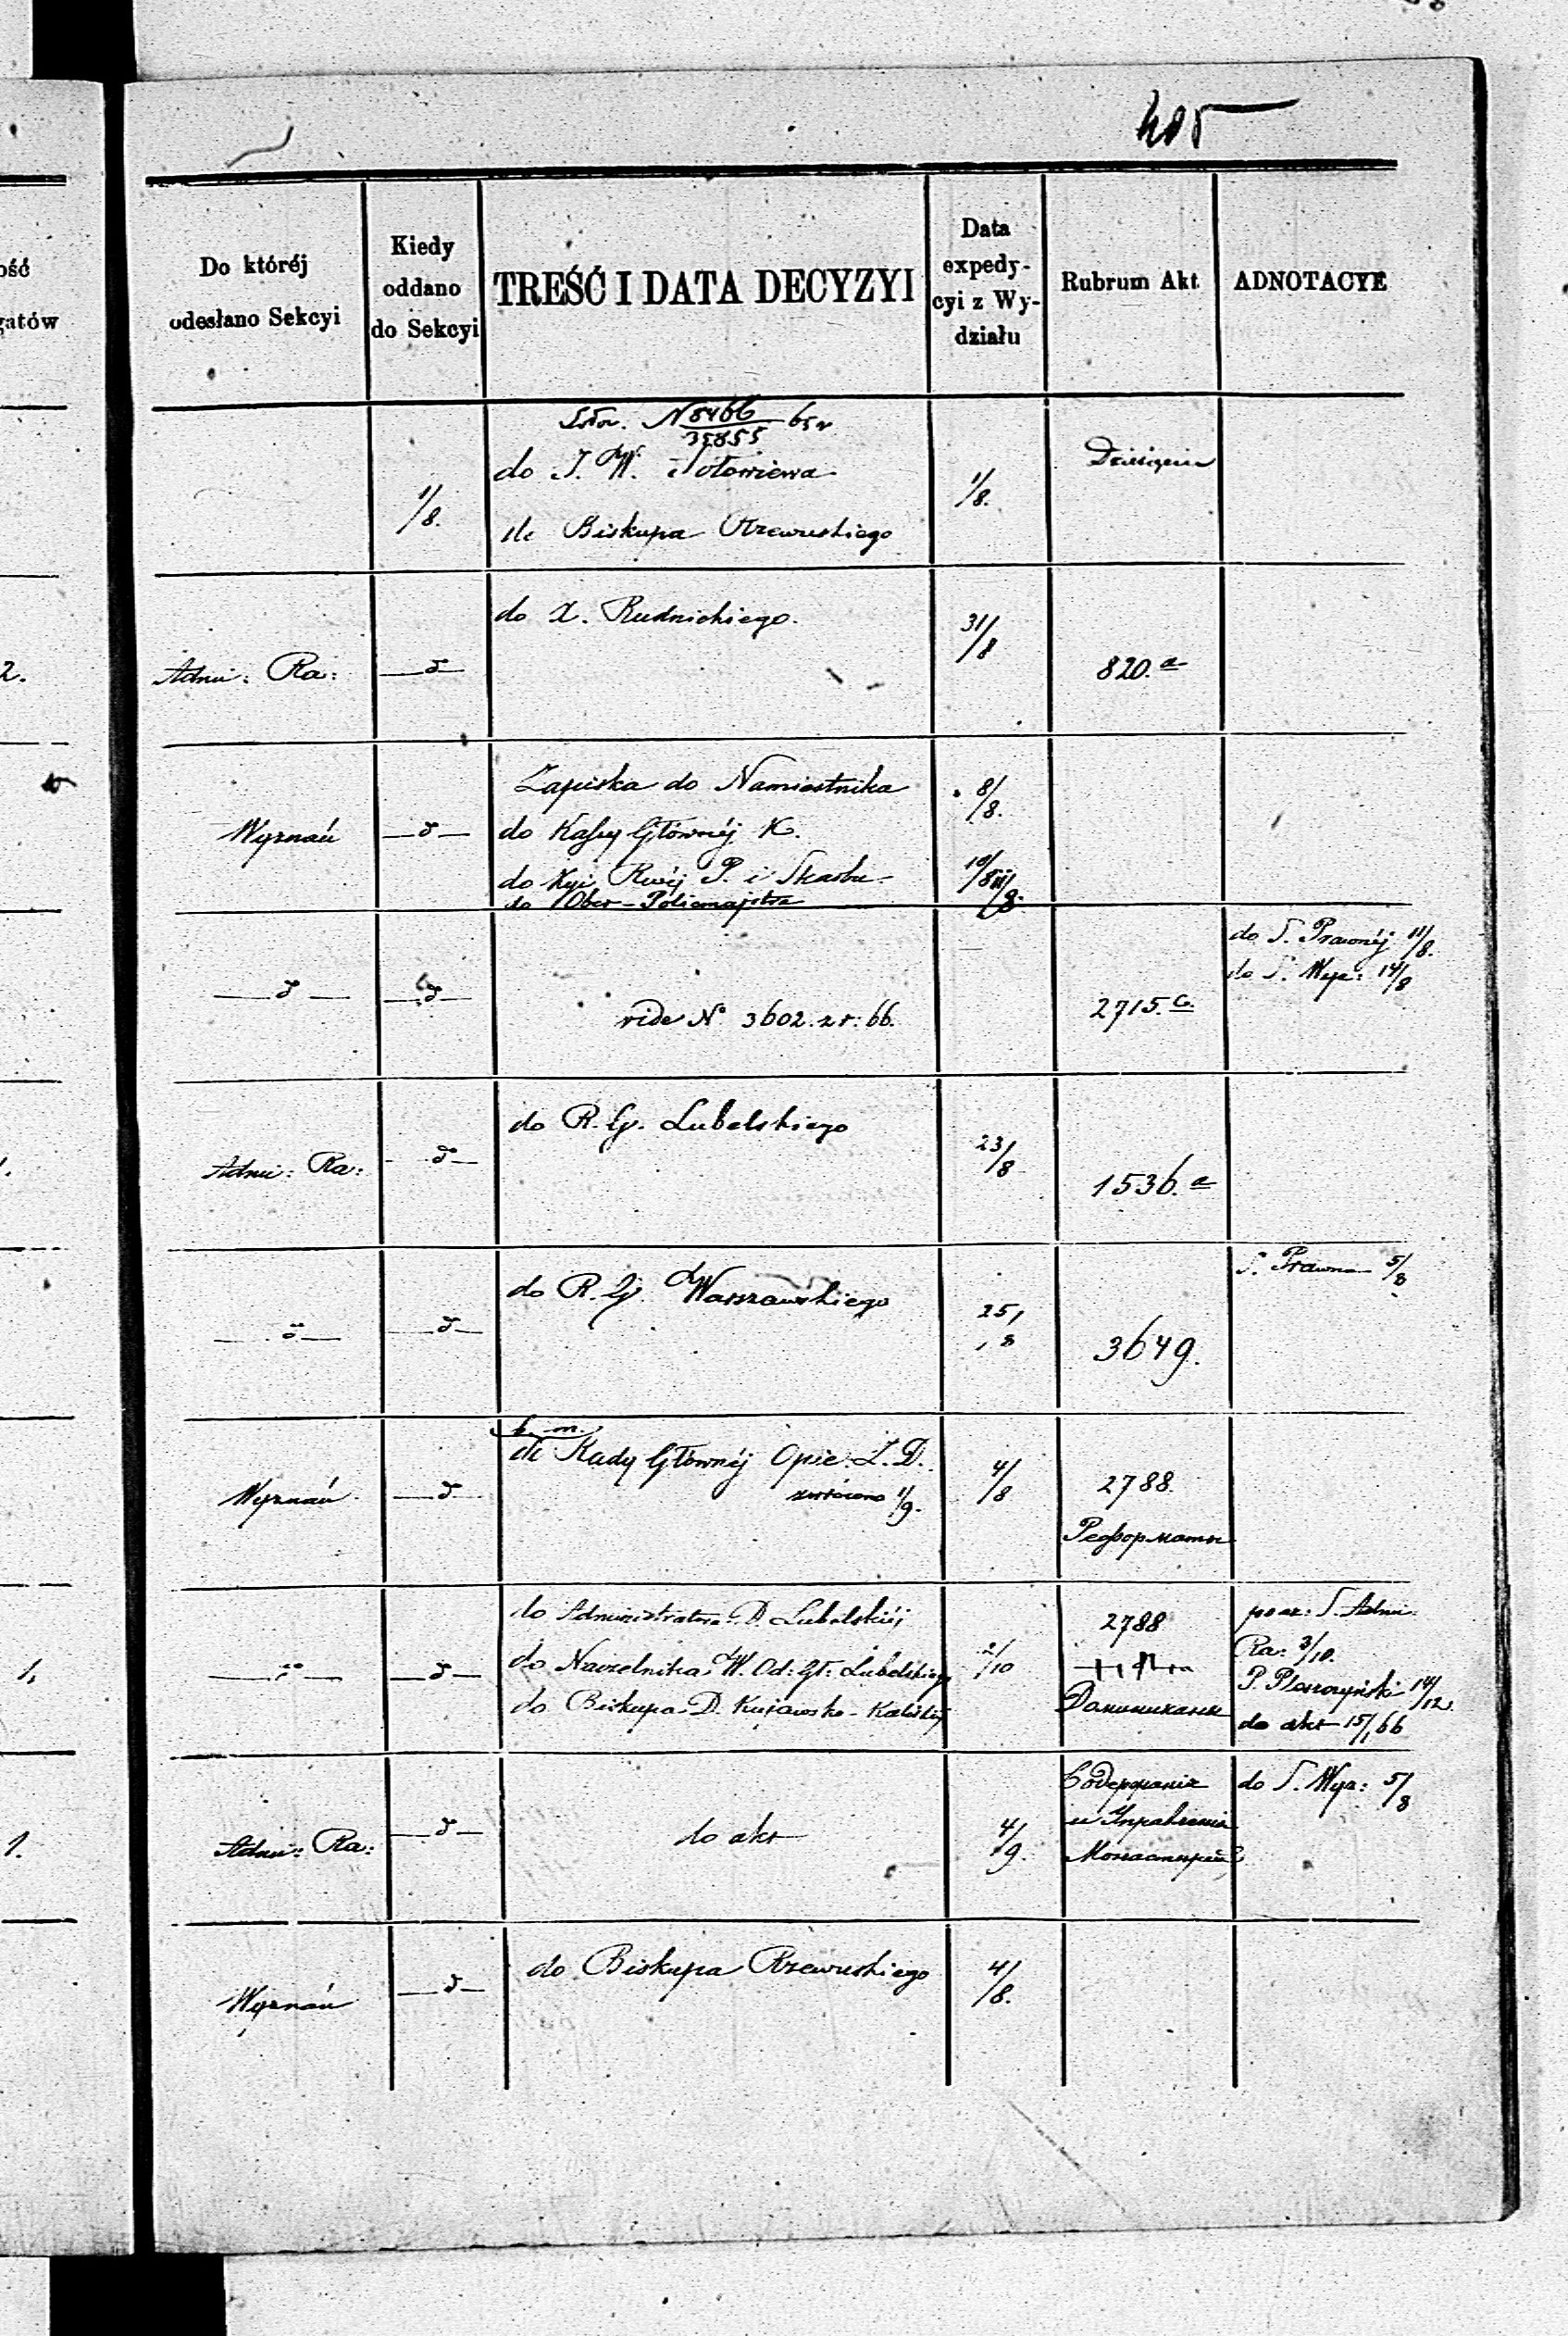 405
ość
gatów
Do któréj
odesłano Sekcyi
Kiedy
oddano
do Sekcyi
TREŚĆ I DATA DECYZYI
Data
expedy-
cyi z Wy-
działu
Rubrum Akt
ADNOTACYE
N 8466/35855 65 r
do J. W. Sołowiewa
1/8.
do Biskupa Rzewuskiego
1/8.
2.
Admi: Ra:
do X. Rudnickiego.
31/8
820. a
Wyznań
Zapiska do Namiestnika
8/8.
do Kassy Głównéj K.
do Kyi Rwéj P. i Skarbu
10/8
do Ober-Policmajstra
11/8.
vide No 3602. z r: 66.
2715. c.
do S. Prawnéj 11/8.
do S. Wyz: 14/8
Admi: Ra:
do R. G. Lubelskiego
23/8
1536. a
do R. G. Warszawskiego
25/8
3649.
S. Prawna 5/8
Wyznań
b. m.
do Rady Głównéj Opie. Z. D.
zwrócono 1/9.
4/8
2788.
Реформаты
1,
do Administratora D. Lubelskiéj
do Naczelnika W. Od: Gł: Lubelskiego
do Biskupa D. Kujawsko-Kaliskiéj
2/10
2788
Доминикане
S. Admi:
Ra: 3/10.
14/12.
do akt 15/1 66
1.
Admi: Ra:
do akt
4/9.
Содержание
и Управление
Монастырей
do S. Wyz: 5/8
Wyznań
do Biskupa Rzewuskiego
4/8.